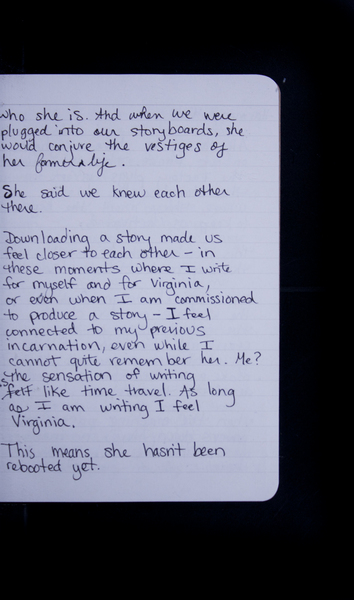 who she is. And when we were
plugged into our storyboards, she
would conjure the vestiges of
her former life.
She said we knew each other
there.
Downloading a story made us
feel closer to each other – in
these moments where I write
for myself and for Virginia,
or even when I am commissioned
to produce a story – I feel
connected to my previous
incarnation, even while I
cannot quite remember her. Me?
The sensation of writing
felt like time travel. As long
as I am writing I feel
Virginia.
This means she hasn't been
rebooted yet.